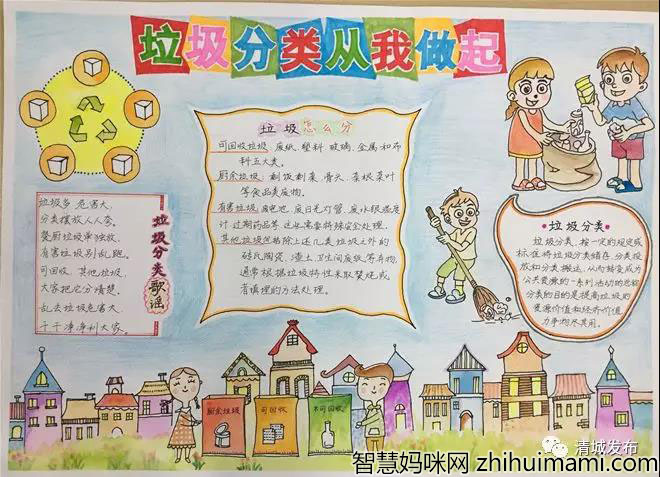 垃圾分类从我做起
垃圾怎么分
可回收垃圾:废纸、塑料、玻璃、金属和布
料五大类。
厨余垃圾:剩饭剩菜、骨头、菜根菜叶
等食品类废物。
有害垃圾:废电池、废日光灯管、废水银温度
计、过期药品等,这些需要特殊安全处理。
其他垃圾包括除上述几类垃圾之外的
砖瓦陶瓷、渣土、卫生间废纸等弃物,
通常根据垃圾特性采取焚烧或
者填埋的方法处理。
垃圾分类歌谣
垃圾多,危害大,
分类摆放人人夸。
餐厨垃圾单独放,
有害垃圾别乱跑。
可回收、其他垃圾,
大家把它分清楚。
乱丢垃圾危害大,
干干净净利大家。
垃圾分类
垃圾分类,按一定的规定或
标准将垃圾分类储存、分类投
放和分类搬运,从而转变成为
公共资源的一系列活动的总称。
分类的目的是提高垃圾的
资源价值和经济价值,
力争物尽其用。
厨余垃圾
可回收
不可回收
清城发布
智慧妈咪网 zhihuimami.com